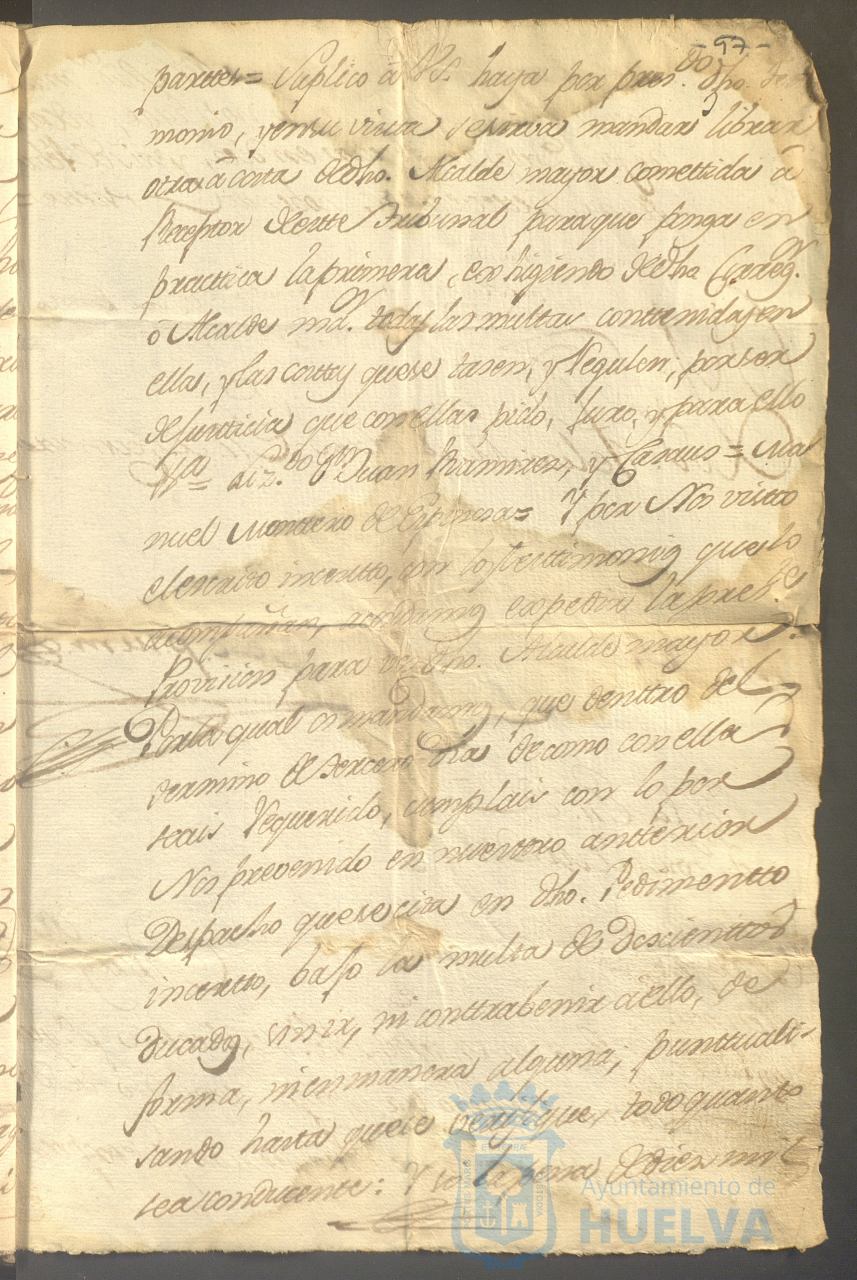 -97-
parttes = Suplico á VS. haya por pres.do dho. testi
monio, y en su vista se sirva mandar librar
otra á costa de dho. Alcalde mayor comettida á
Receptor de este Tribunal para que ponga en
practtica la primera, exhigiendo de dho Correg.r
ó Alcalde m.r todas las multas conttenidas en
ellas, y las costtas que se tasen, y regulen, por ser
de justticia que con ellas pido, juro, y para ello
Juan Ramirez, y Casaus = Ma
nuel Monttero de Espinosa = Y por Nos visto
el escrito incertto, con los testtimonios que lo
acompañan, acordamos expedir la pres.te
Provision para vos dho. Alcalde mayor
Por la qual os mandamos, que denttro del
termino de tercero dia de como con ella
seais requerido, cumplais con lo por
Nos prevenido en nuesttro antterior
Despacho que se cita en dho. Pedimentto
incertto, bajo la multa de Doscienttos
Ducados, sin ir, ni conttrabenir á ello, de
forma, ni en manera alguna, punttuali-
sando hasta que se verifique, todo quanto
sea conducente: Y so la pena de diez mil
Ayuntamiento de
HUELVA